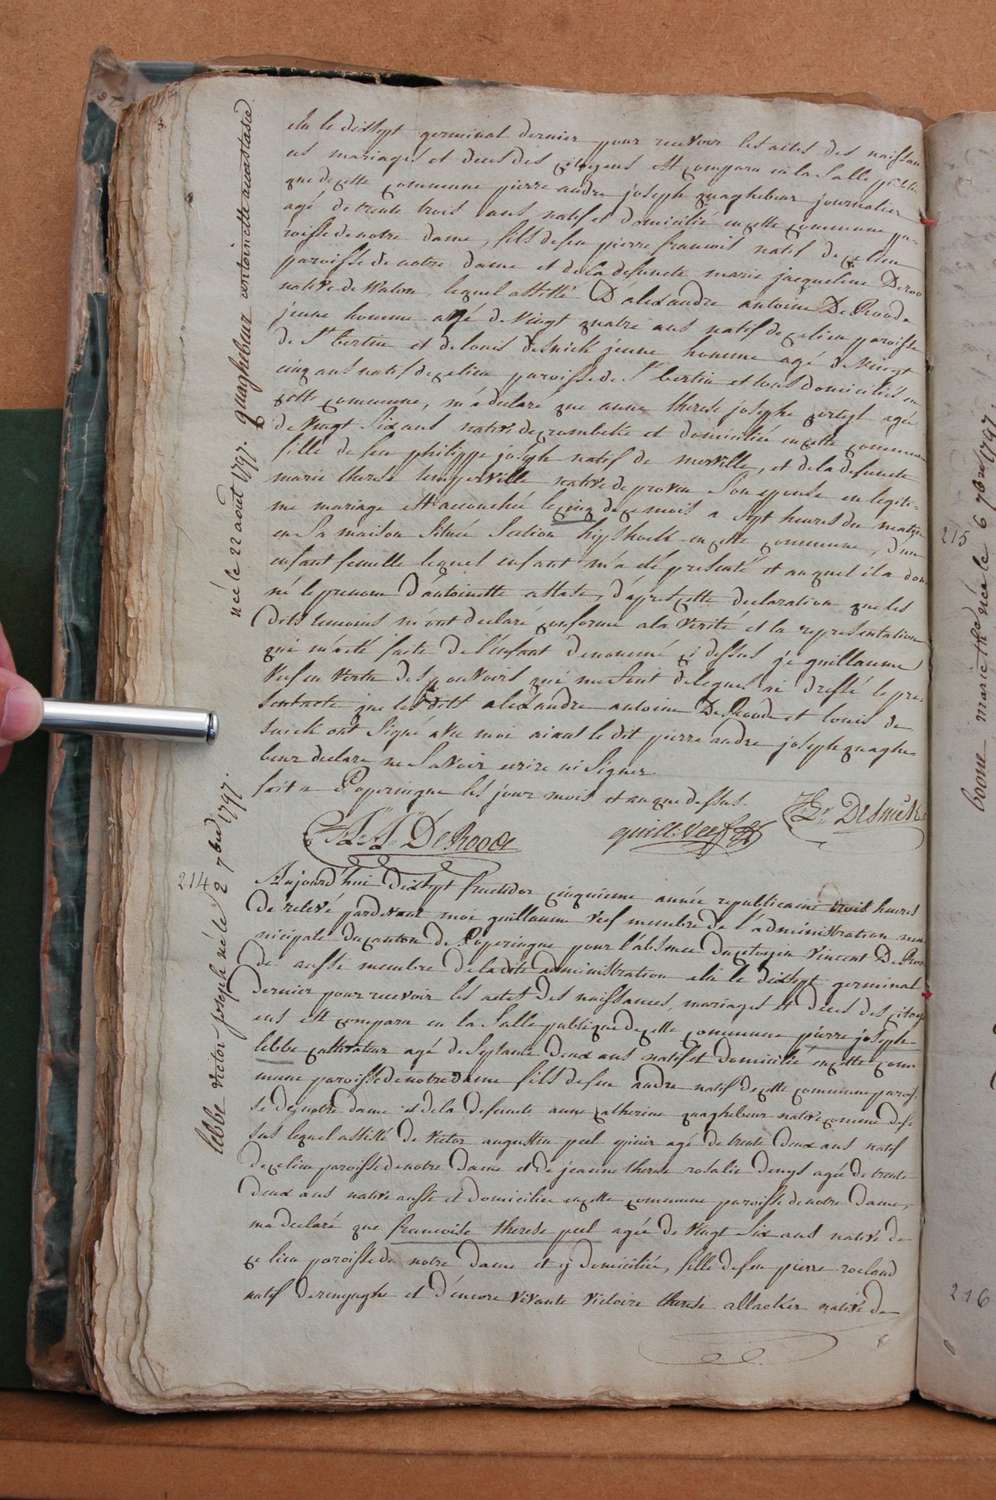 elu le dixsept germinal dernier pour recevoir les actes des naissan
ces mariages et deces des citoyens est comparu en la salle publi
que de cette commune pierre andre joseph quaghebeur journalier
agé de trente trois ans natif et domicilié en cette commune pa
roisse de notre dame, fils de feu pierre francois natif de ce lieu
paroisse de notre dame et de la defuncte marie jacqueline Deroo
native de Watou, lequel assisté D'alexandre antoine De Roode
jeune homme agé de vingt quatre ans natif de ce lieu paroisse
de St bertin et de louis desmick jeune homme agé de vingt
cinq ans natif de ce lieu paroisse de St bertin et tous domiciliés en
cette commune, m'a declaré que anne therese josephe agé
de vingt six ans native de crombeke et domiciliée en cette commune
fille de feu philippe joseph natif de merville, et de la defuncte
marie therese native de proven son epouse en legiti-
me mariage est accouchée le cinq de ce mois a sept heures du matin
en sa maison située section en cette commune, d'un
enfant femelle lequel enfant m'a été presenté et auquel il a don
né le prenom D'antoinette, d'après cette declaration que les
Dits temoins m'ont declaré conforme a la verité et la representation
qui m'a été faite de l'enfant denommé ci dessus je guillaume
Veef en vertu des pouvoirs qui me sont delegués ai dressé le pre
sent acte que les dits alexandre antoine De Roode et louis de
smick ont signé avec moi aiant le dit pierre andre joseph quaghe
beur declaré ne savoir ecrire ni signer.
fait a Poperingue les jour mois et an que dessus.
De Roode guill: Veef Desmick
née le 22 aout 1797. quaghebeur antoinette anastasie
214
lebbe victor joseph né le 2 7bre 1797.
Aujourd'hui dixsept fructidor cinquieme année republicaine trois heures
De relevé pardevant moi guillaume Veef membre de l'administration mu
nicipale du canton de Poperingue pour l'absence du citoyen vincent De Roo
de aussi membre de la dite administration elu le dixsept germinal
dernier pour recevoir les actes des naissances, mariages et deces des citoy
ens est comparu en la salle publique de cette commune pierre joseph
lebbe cultivateur agé de septante deux ans natif et domicilié en cette com
mune paroisse de notre dame fils de feu andre natif de cette commune parois
se de notre dame et de la defuncte anne catherine quaghebeur native comme des
sus lequel assisté de victor augustin peel agé de trente deux ans natif
de ce lieu paroisse de notre dame et de jeanne therese rosalie Denys agée de trente
deux ans native aussi et domiciliée en cette commune paroisse de notre dame,
m'a declaré que francoise therese peel agée de vingt six ans native de
ce lieu paroisse de notre dame et y domiciliée, fille de feu pierre roeland
natif de reninghe et d'encore vivante victoire therese native de
215
boone marie the née le 6 7bre 1797.
216